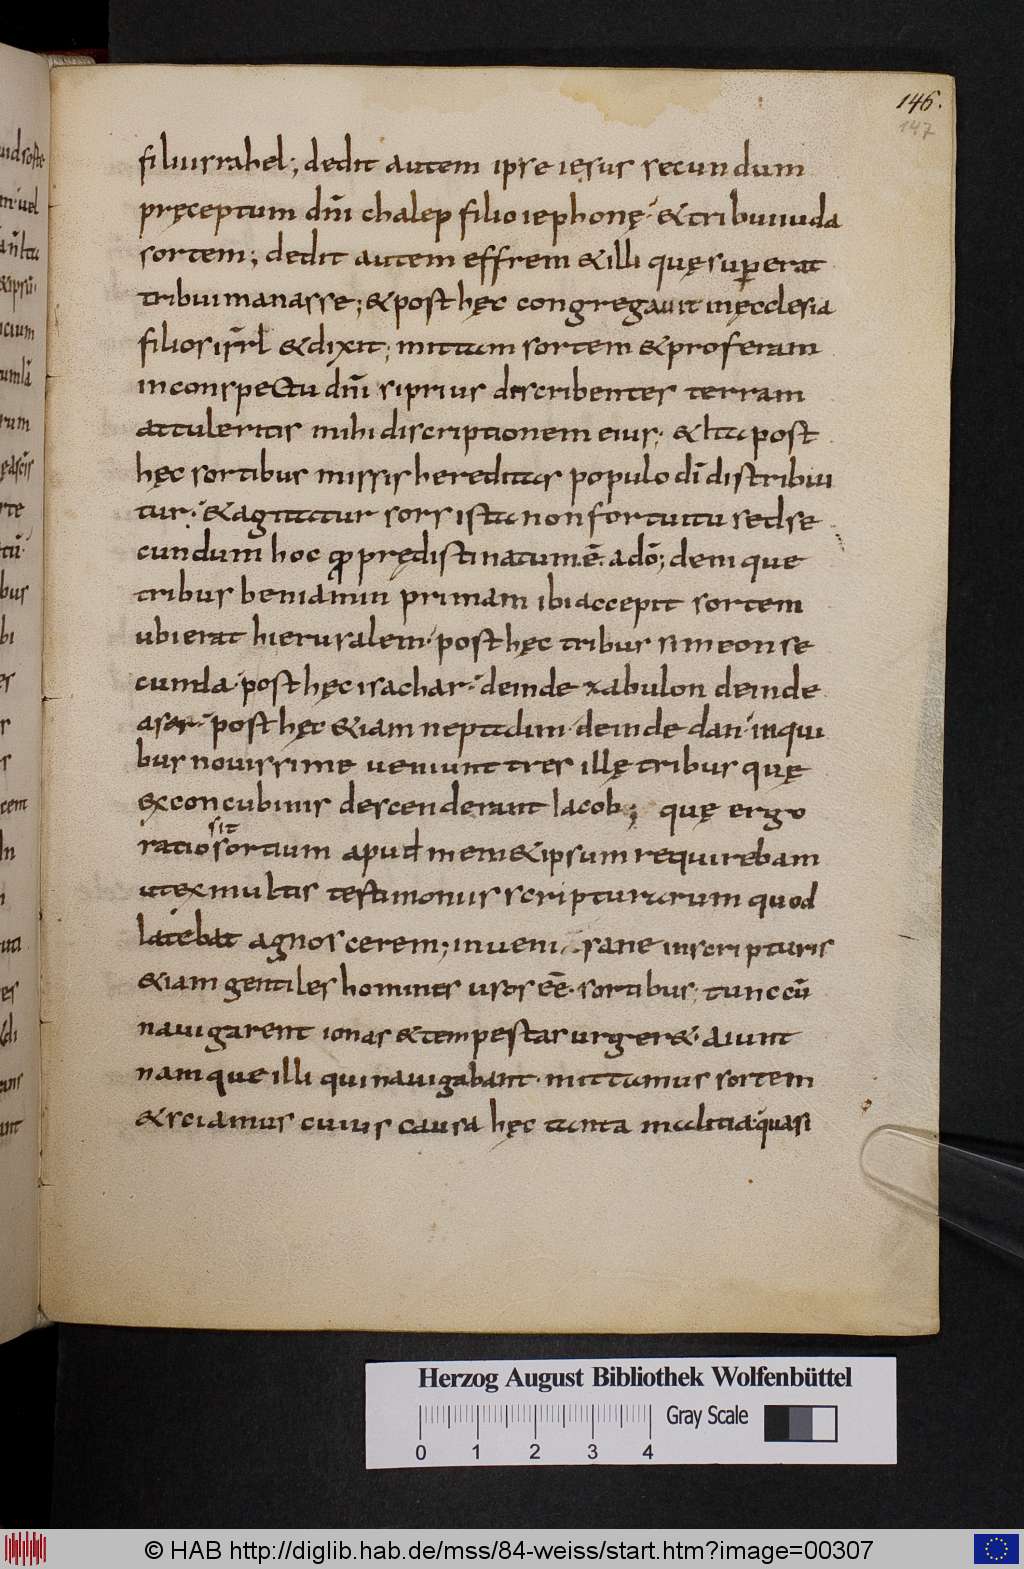 146.
147
filiis rahel; dedit autem ipse iesus secundum
pręceptum dnī chalep filio iephonę · & tribui iuda
sortem; dedit autem effrem & illi quę superat
tribui manasse; & post hęc congregauit in ęcclesia
filios isrl̄ & dixit; mittam sortem & proferam
in conspectu dnī si prius discribentes terram
attuleritis mihi discriptionem eius; & ita post
hęc sortibus missis hereditas populo dī distribui
tur · & agitatur sors ista non fortuitu sed se
cundum hoc quod prędistinatum ē. a dō; denique
tribus beniamin primam ibi accepit sortem
ubi erat hierusalem · post hęc tribus simeon se
cunda · post hęc isachar · deinde zabulon deinde
aser · post hęc &iam neptalim · deinde dan · in qui
bus nouissime ueniunt tres illę tribus quę
ex concubinis descenderant iacob; quę ergo
sit
ratio sortium apud mem&ipsum requirebam
ut ex multis testimoniis scripturarum quod
latebat agnoscerem; inueni sane in scripturis
&iam gentiles homines usos eē · sortibus; tunc cū
nauigarent ionas & tempestas urger& · aiunt
namque illi qui nauigabant · mittamus sortem
& sciamus cuius causa hęc tanta malitia · quasi
Herzog August Bibliothek Wolfenbüttel
Gray Scale
0 1 2 3 4
© HAB http://diglib.hab.de/mss/84-weiss/start.htm?image=00307